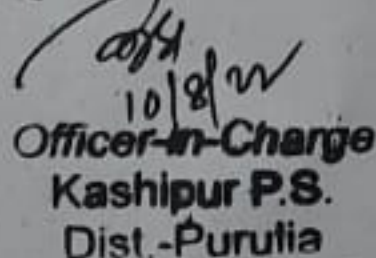 10/8/22
Officer-in-Charge
Kashipur P.S.
Dist.-Purulia